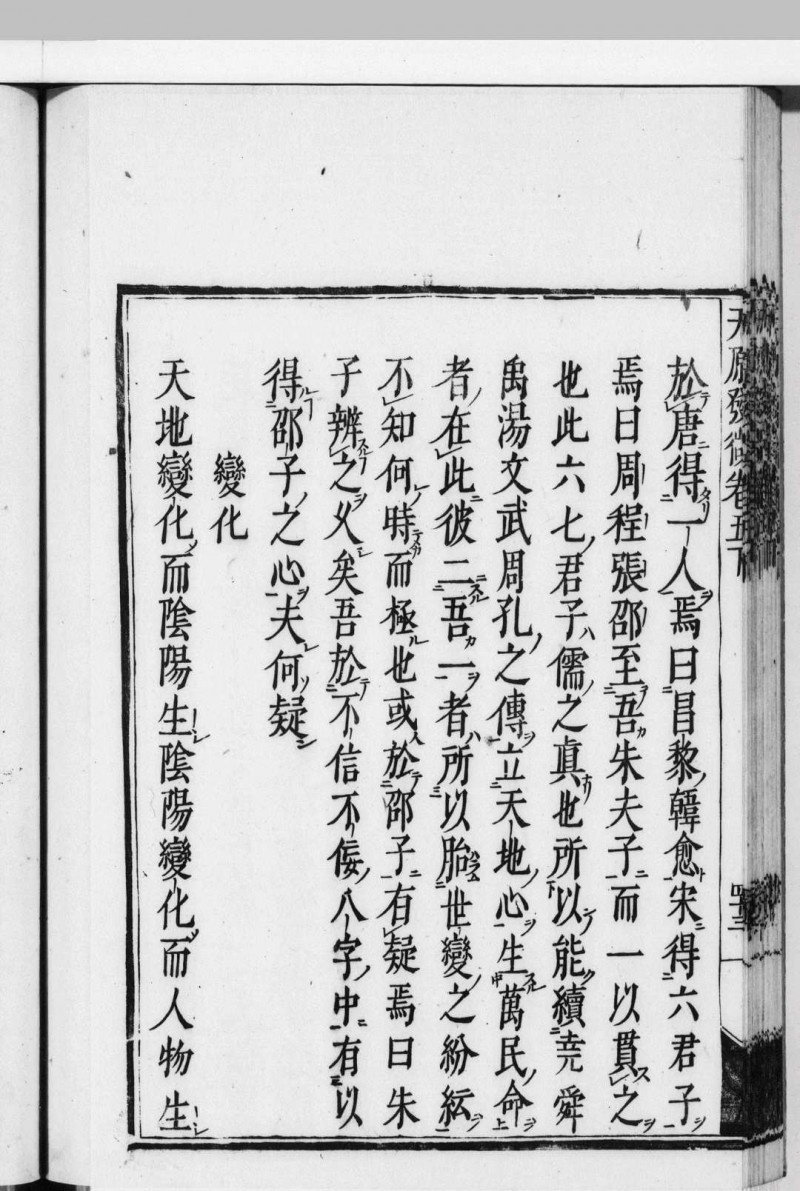 天原發微卷五下
於唐得一人焉曰昌黎韓愈宋得六君子
焉曰周程張邵至吾朱夫子而一以貫之
也此六七君子儒之真也所以能續堯舜
禹湯文武周孔之傳立天地心生萬民命
者在此彼二吾一者所以胎世變之紛紜
不知何時而極也或於邵子有疑焉曰朱
子辨之久矣吾於不信不侫八字中有以
得邵子之心夫何疑
變化
天地變化而陰陽生陰陽變化而人物生